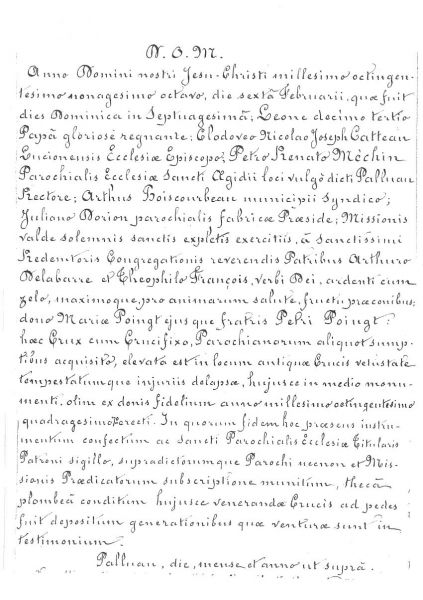 D. O. M.
Anno Domini nostri Jesu-Christi millesimo octingen-
tesimo nonagesimo octavo, die sextâ Februarii, quæ fuit
dies Dominica in Septuagesimâ; Leone decimo tertio
Papâ gloriose regnante; Clodoveo Nicolao Joseph Catteau
Lucionensis Ecclesiæ Episcopo; Petro Renato Méchin
Parochialis Ecclesiæ Sancti Ægidii loci vulgò dicti Palluan
Rectore; Arthus Boiscourbeau municipii Syndico;
Juliano Dorion parochialis fabricæ Præside; Missionis
valde solemnis sanctis expletis exercitiis, â Sanctissimi
Redemtoris Congregationis reverendis Patribus Arthuro
Delabarre et Theophilo François, verbi Dei, ardenti cum
zelo, maximoque, pro animarum salute, fructu præconibus;
dono Mariæ Poingt ejusque fratris Petri Poingt:
hæc Crux cum Crucifixo, Parochianorum aliquot sump-
tibus acquisito, elevata est in locum antiquæ Crucis vetustate
tempestatumque injuriis delapsæ, hujusce in medio monu-
menti, olim ex donis fidelium anno millesimo octingentesimo
quadragesimo erecti. In quorum fidem hoc præsens instru-
mentum confectum ac Sancti Parochialis Ecclesiæ Titularis
Patroni sigillo, supradictorumque Parochi necnon et Mis-
sionis Prædicatorum subscriptione munitum, thecâ
plombeâ conditum hujusce venerandæ Crucis ad pedes
fuit depositum generationibus quæ venturæ sunt in
testimonium.
Palluan, die, mense et anno ut suprâ.